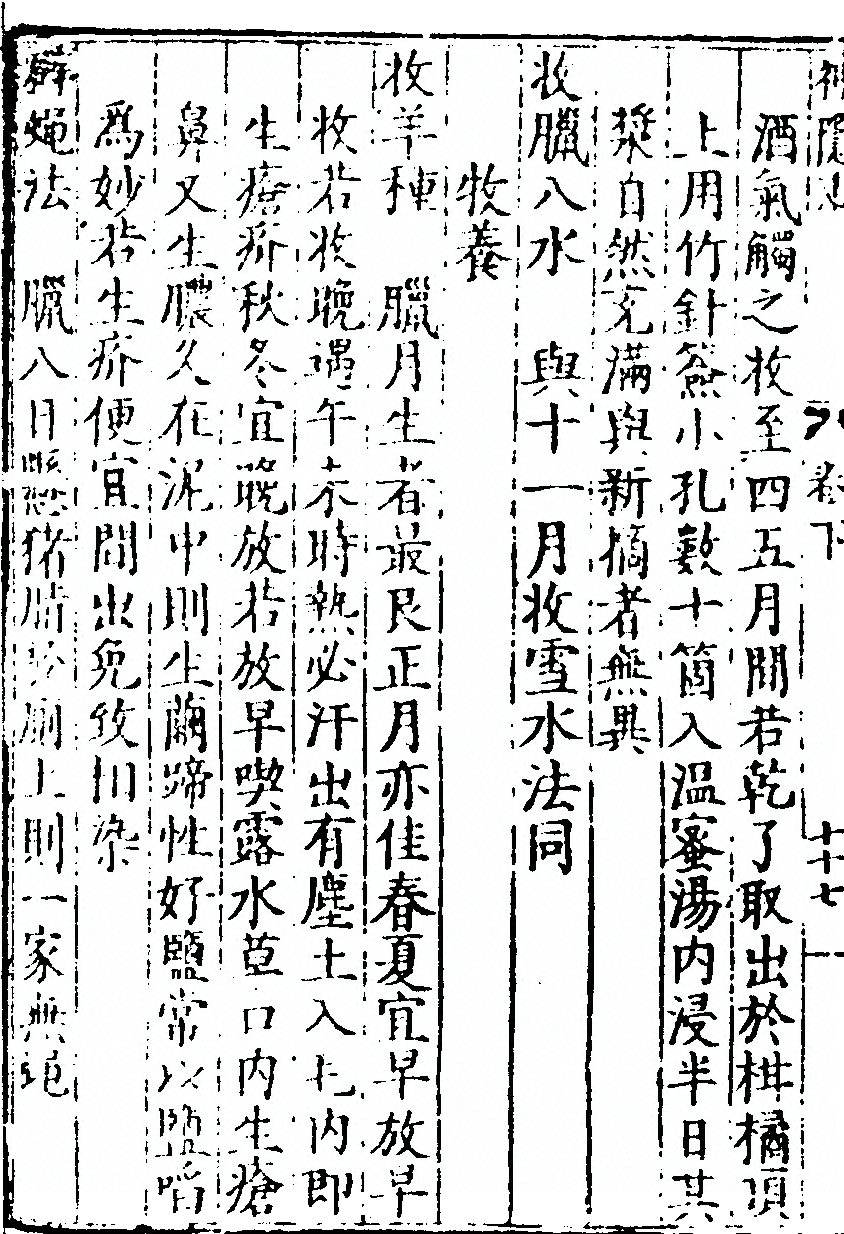 卷下
酒氣觸之收至四五月間若乾了取出於柑橘頂
上用竹針簽小孔數十箇入温蜜湯内浸半日其
漿自然充滿與新摘者無異
收臘八水　與十一月收雪水法同
牧養
收羊種　臘月生者最良正月亦佳春夏宜早放早
收若收晚遇午未時熱必汗出有塵土入毛内即
生瘡疥秋冬宜晚放若放早喫露水草口内生瘡
鼻又生膿久在泥中則生繭蹄性好鹽常以鹽啗
爲妙若生疥便宜間出免致相染
辟蠅法　臘八日懸猪脂於廁上則一家無蝇